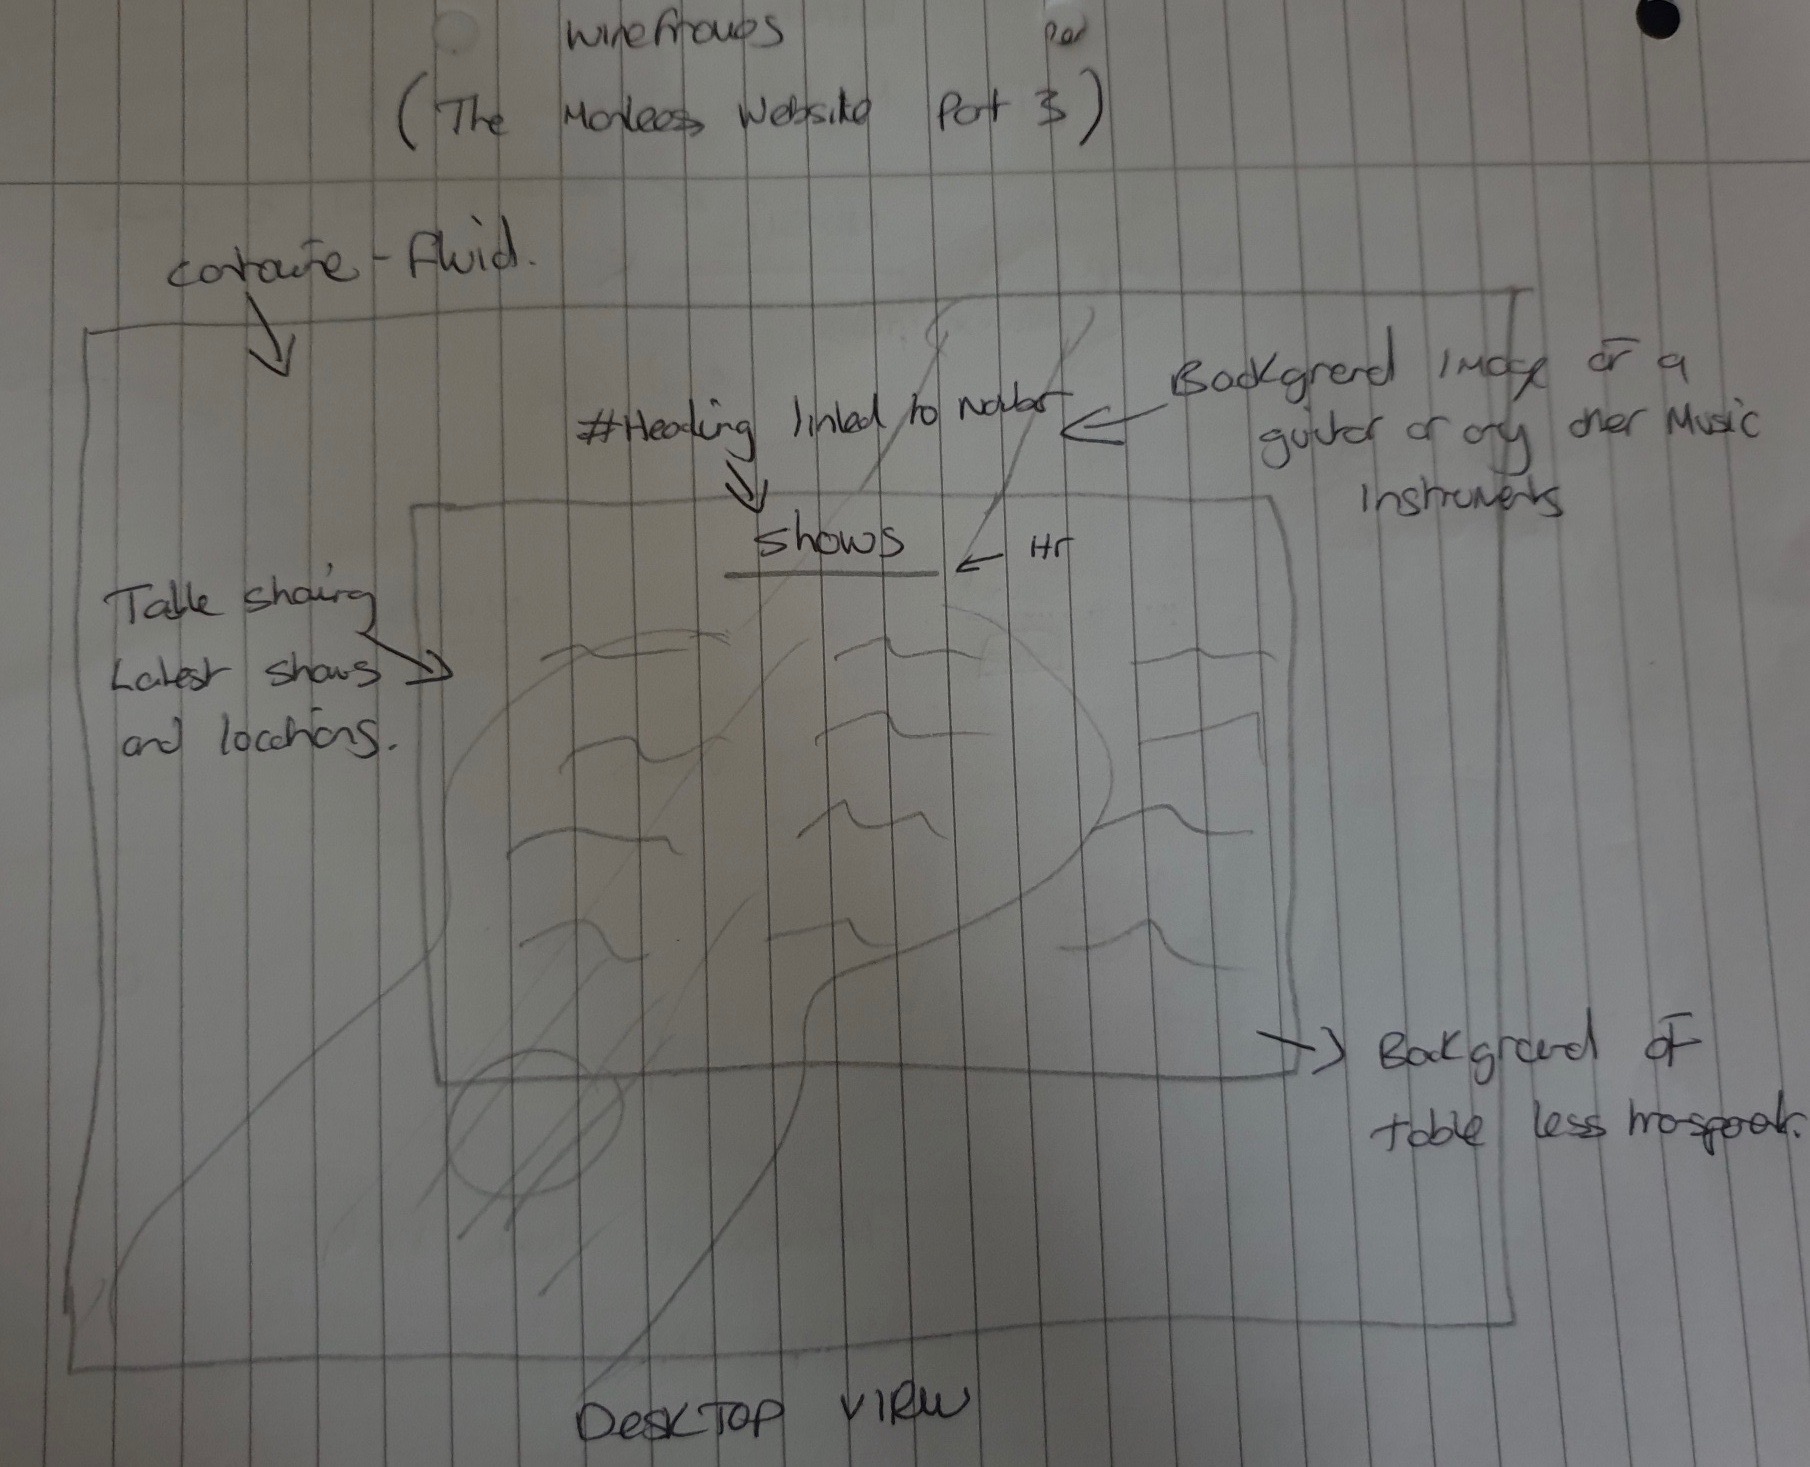 Wireframes
(The Monkees Website Part 3)
container-fluid.
#Heading linked to Navbar
Background image of a
guitar or any other Music
Instruments
shows
Hr
Table showing
Latest shows
and locations.
Background of
table less transparent.
DESKTOP VIEW